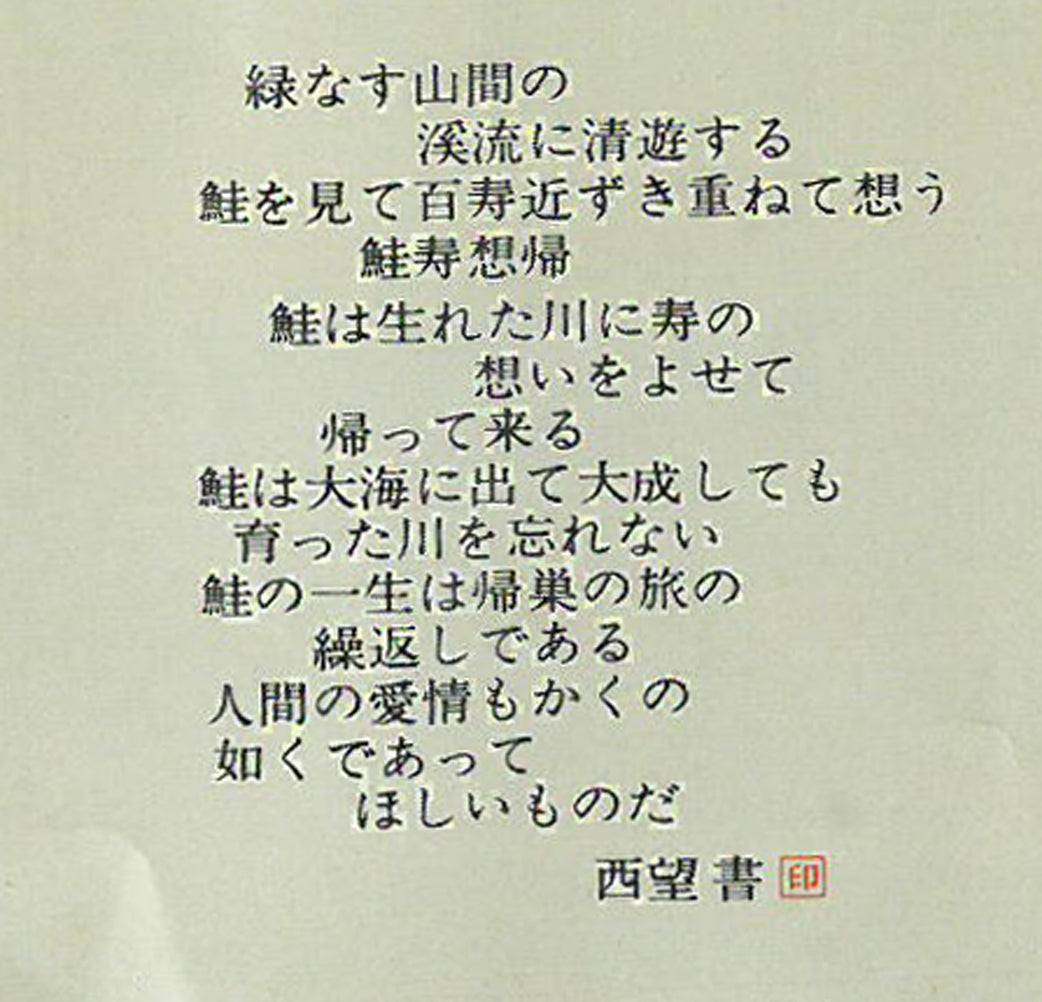 緑なす山間の
渓流に清遊する
鮭を見て百寿近ずき重ねて想う
鮭寿想帰
鮭は生れた川に寿の
想いをよせて
帰って来る
鮭は大海に出て大成しても
育った川を忘れない
鮭の一生は帰巣の旅の
繰返しである
人間の愛情もかくの
如くであって
ほしいものだ
西望書 印